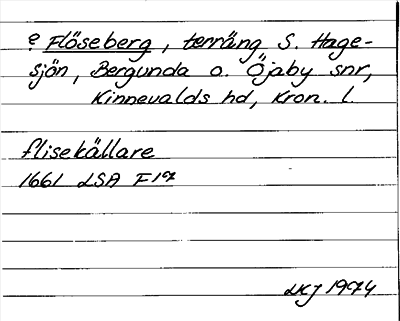 ? Flöseberg, terräng S. Hage-
sjön, Bergunda o. Öjaby snr,
Kinnevalds hd, Kron. l.
flisekällare
1661 LSA F 19
1974